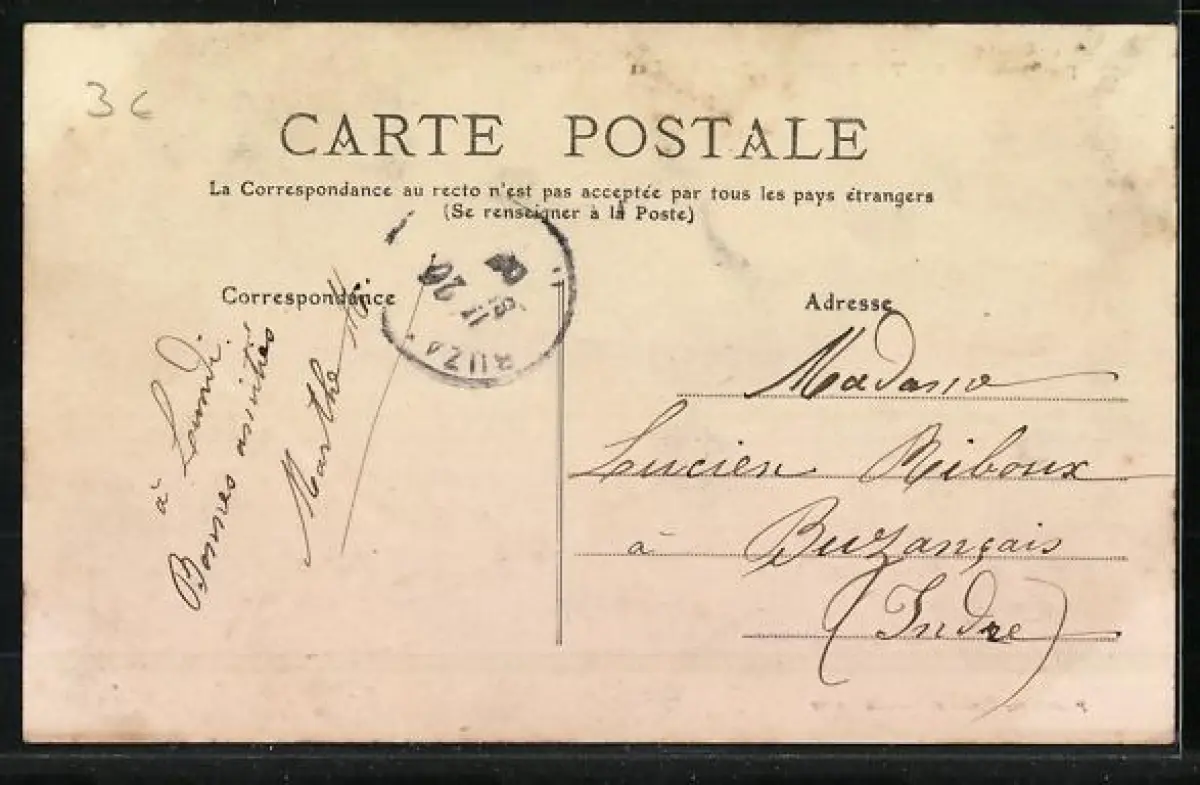 3 c
CARTE POSTALE
La Correspondance au recto n'est pas acceptée par tous les pays étrangers
(Se renseigner à la Poste)
Correspondance
à Lundi.
Bonnes amitiés
Marthe
BUZA
Adresse
Madame
Lucien Riboux
à Buzançais
(Indre)